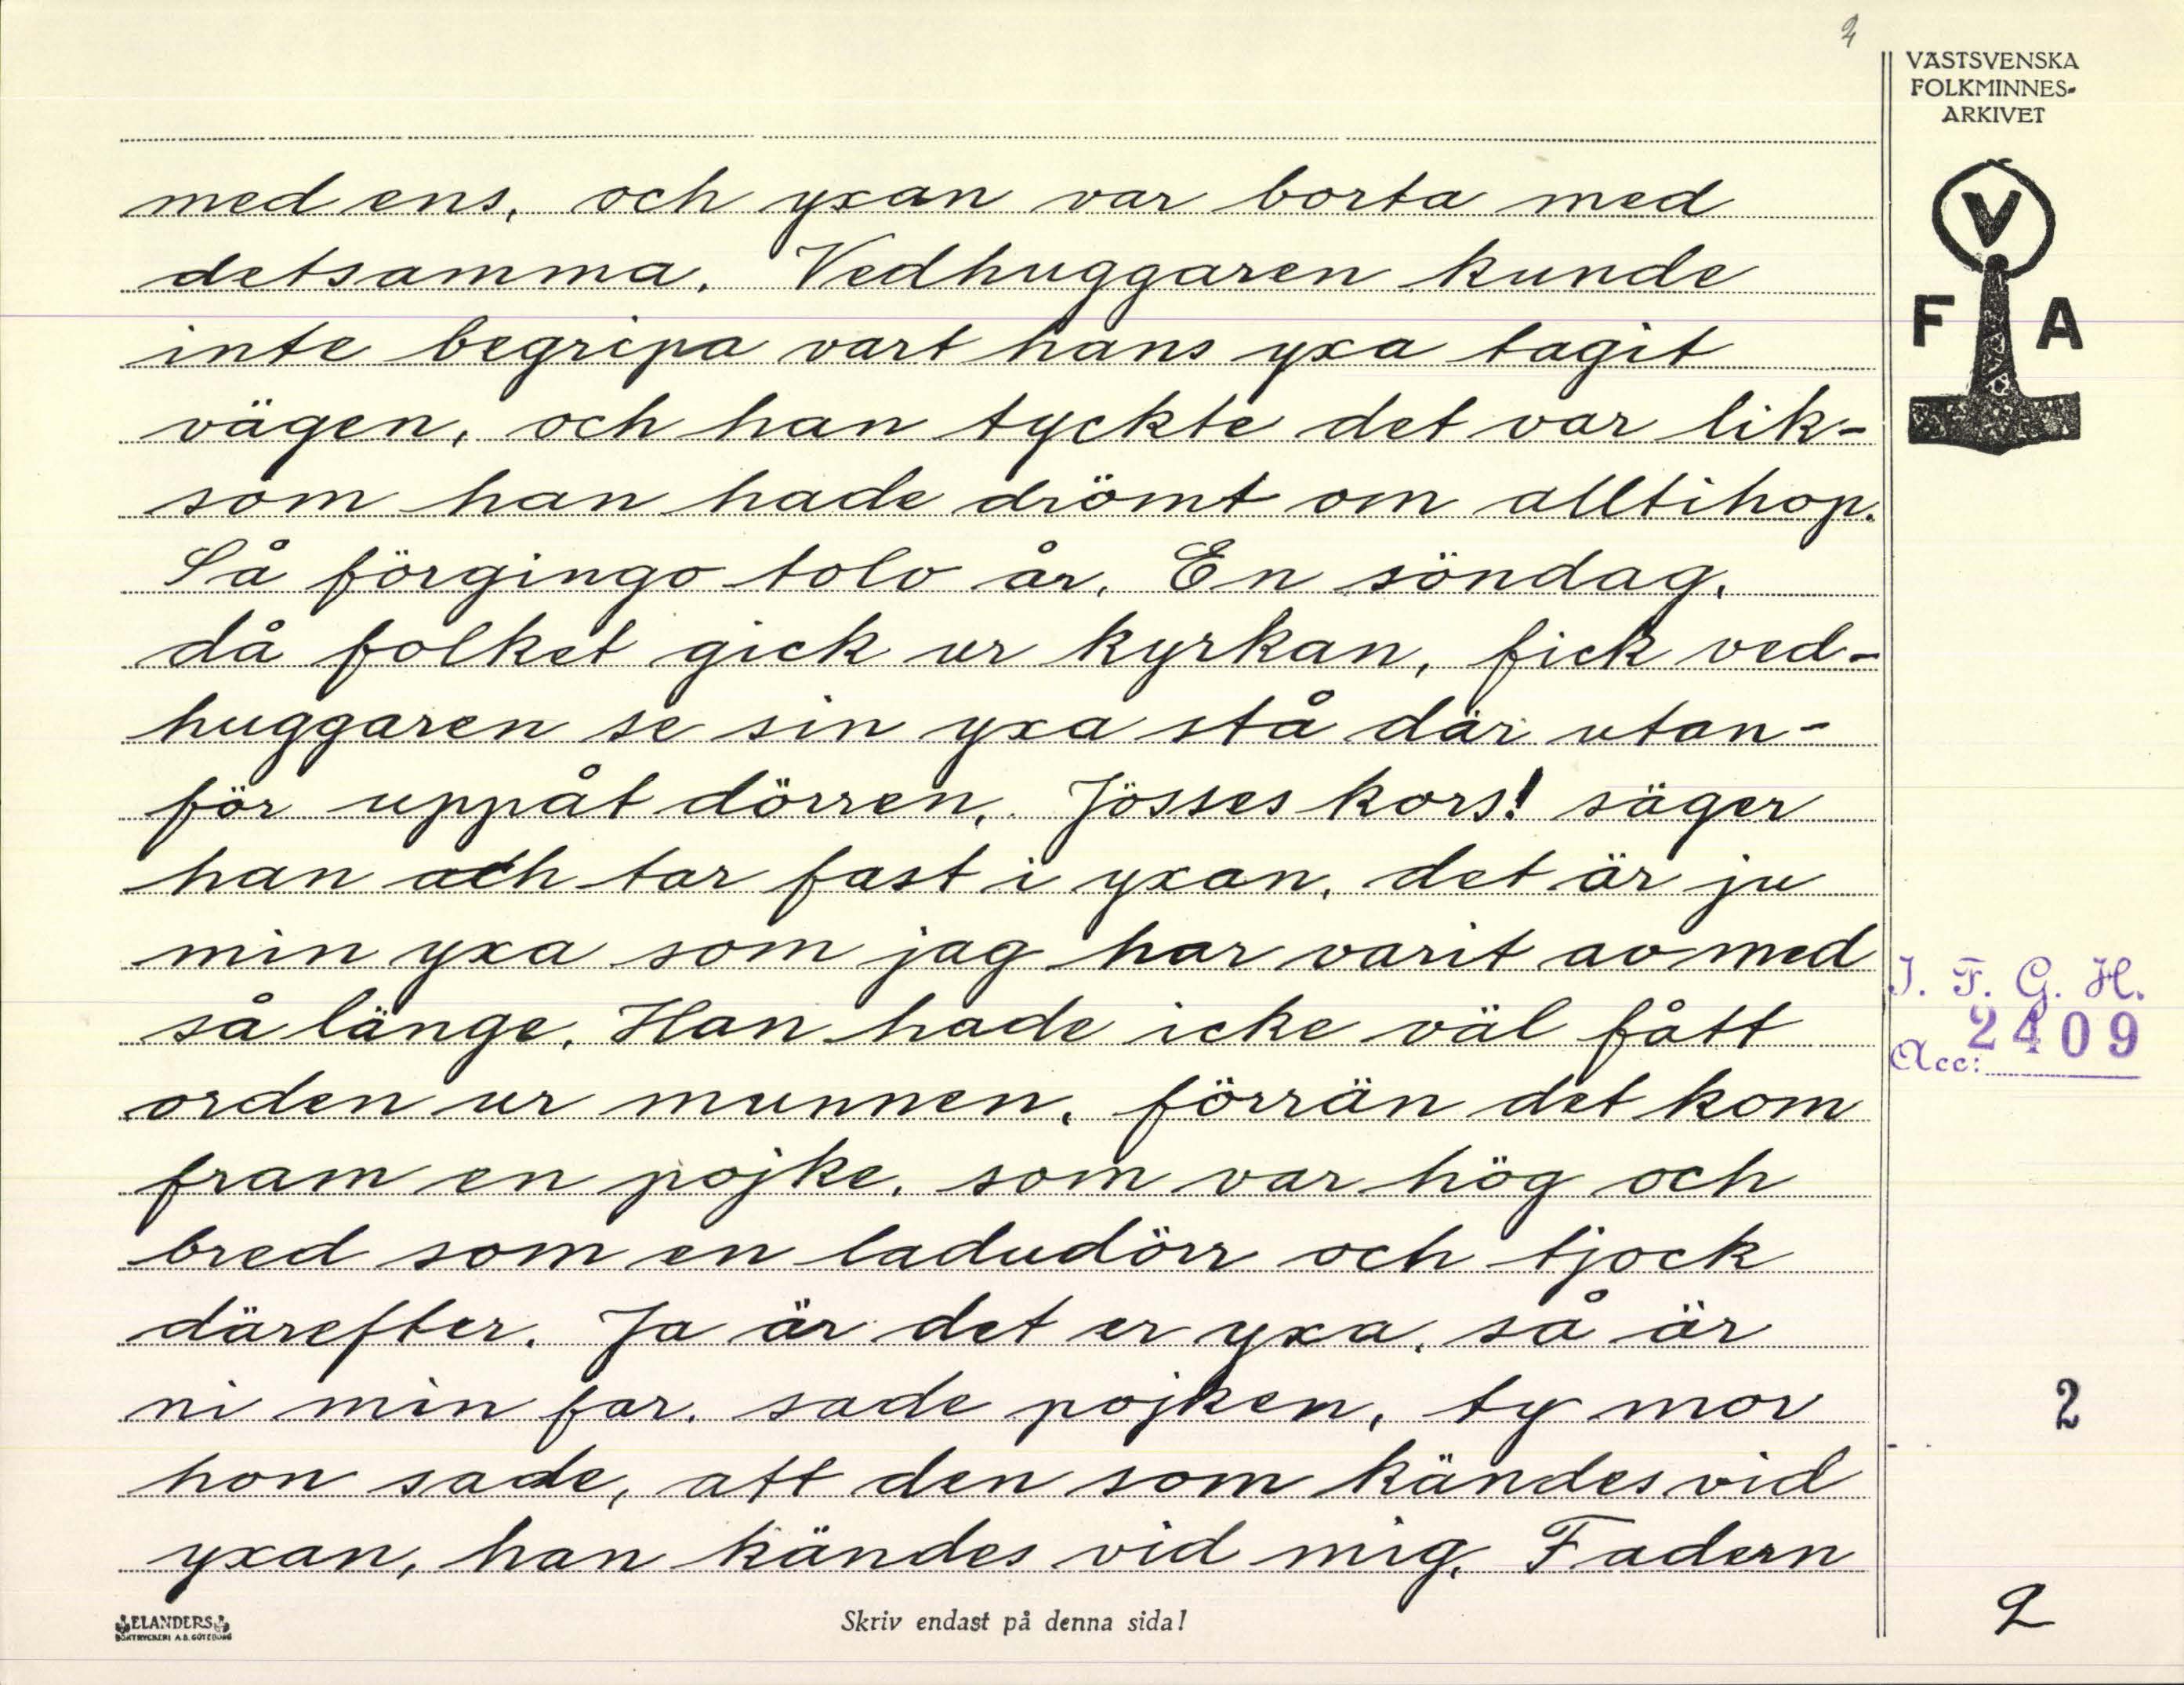 2
VÄSTSVENSKA
FOLKMINNES-
ARKIVET
V
F A
med ens, och yxan var borta med
detsamma. Vedhuggaren kunde
inte begripa vart hans yxa tagit
vägen, och han tyckte det var lik-
som han hade drömt om alltihop.
Så förgingo tolv år. En söndag,
då folket gick ur kyrkan, fick ved-
huggaren se sin yxa stå där utan-
för uppåt dörren. Jösses kors! säger
han och tar fast i yxan, det är ju
min yxa som jag har varit av med
så länge. Han hade icke väl fått
orden ur munnen, förrän det kom
fram en pojke, som var hög och
bred som en ladudörr och tjock
därefter. Ja är det er yxa, så är
ni min far, sade pojken, ty mor
hon sade, att den som kändes vid
yxan, han kändes vid mig. Fadern
I. F. G. H.
Acc: 2409
2
2
ELANDERS
BOKTRYCKERI A.B. GÖTEBORG
Skriv endast på denna sida!